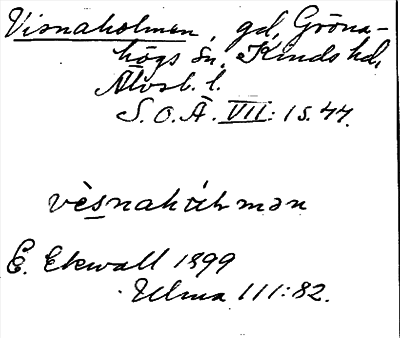 Visnaholmen, gd, Gröna-
högs sn, Kinds hd,
Älvsb. l.
S. O. Ä. VII: 1 s. 44.
E. Ekwall 1899
Ulma 111:82.